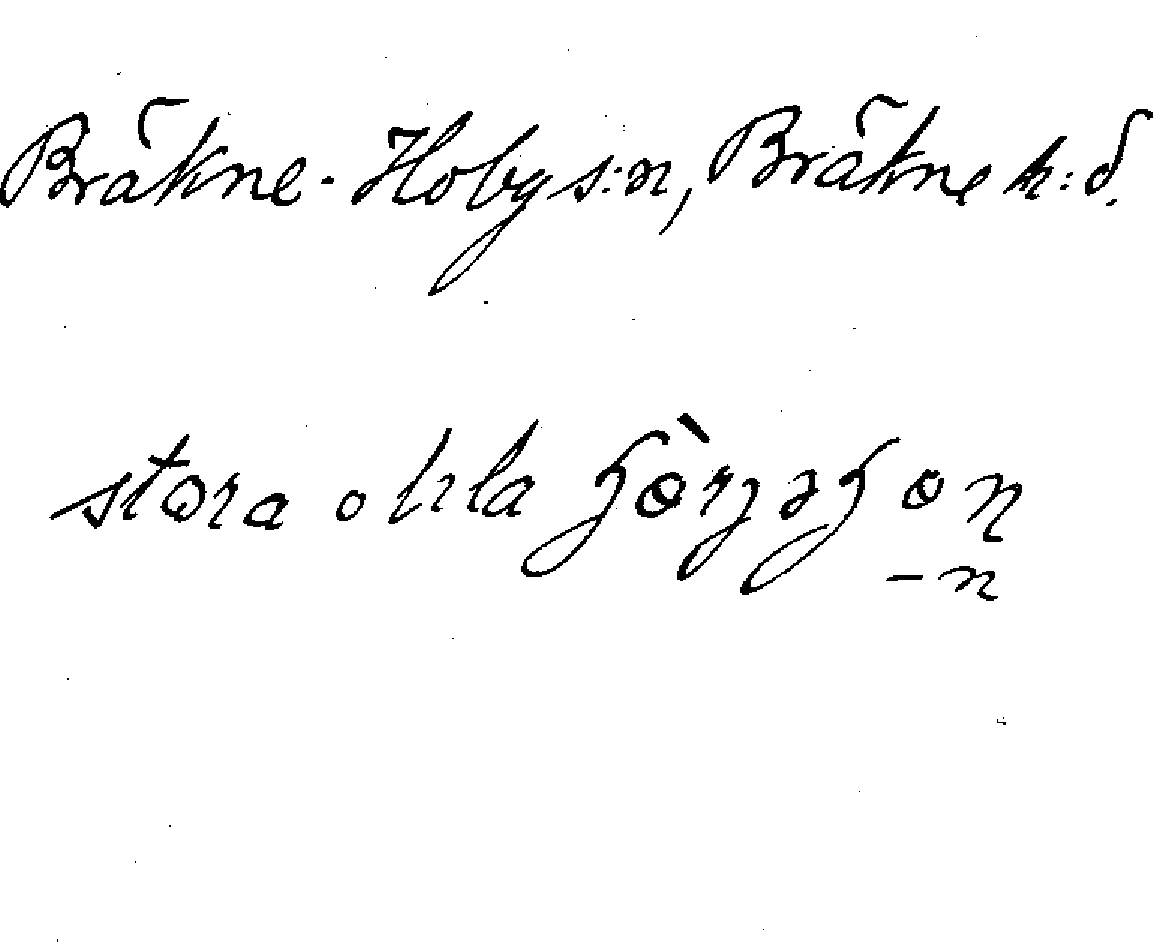 Bräkne-Hoby s:n, Bräkne h:d.
stora o lila
-n